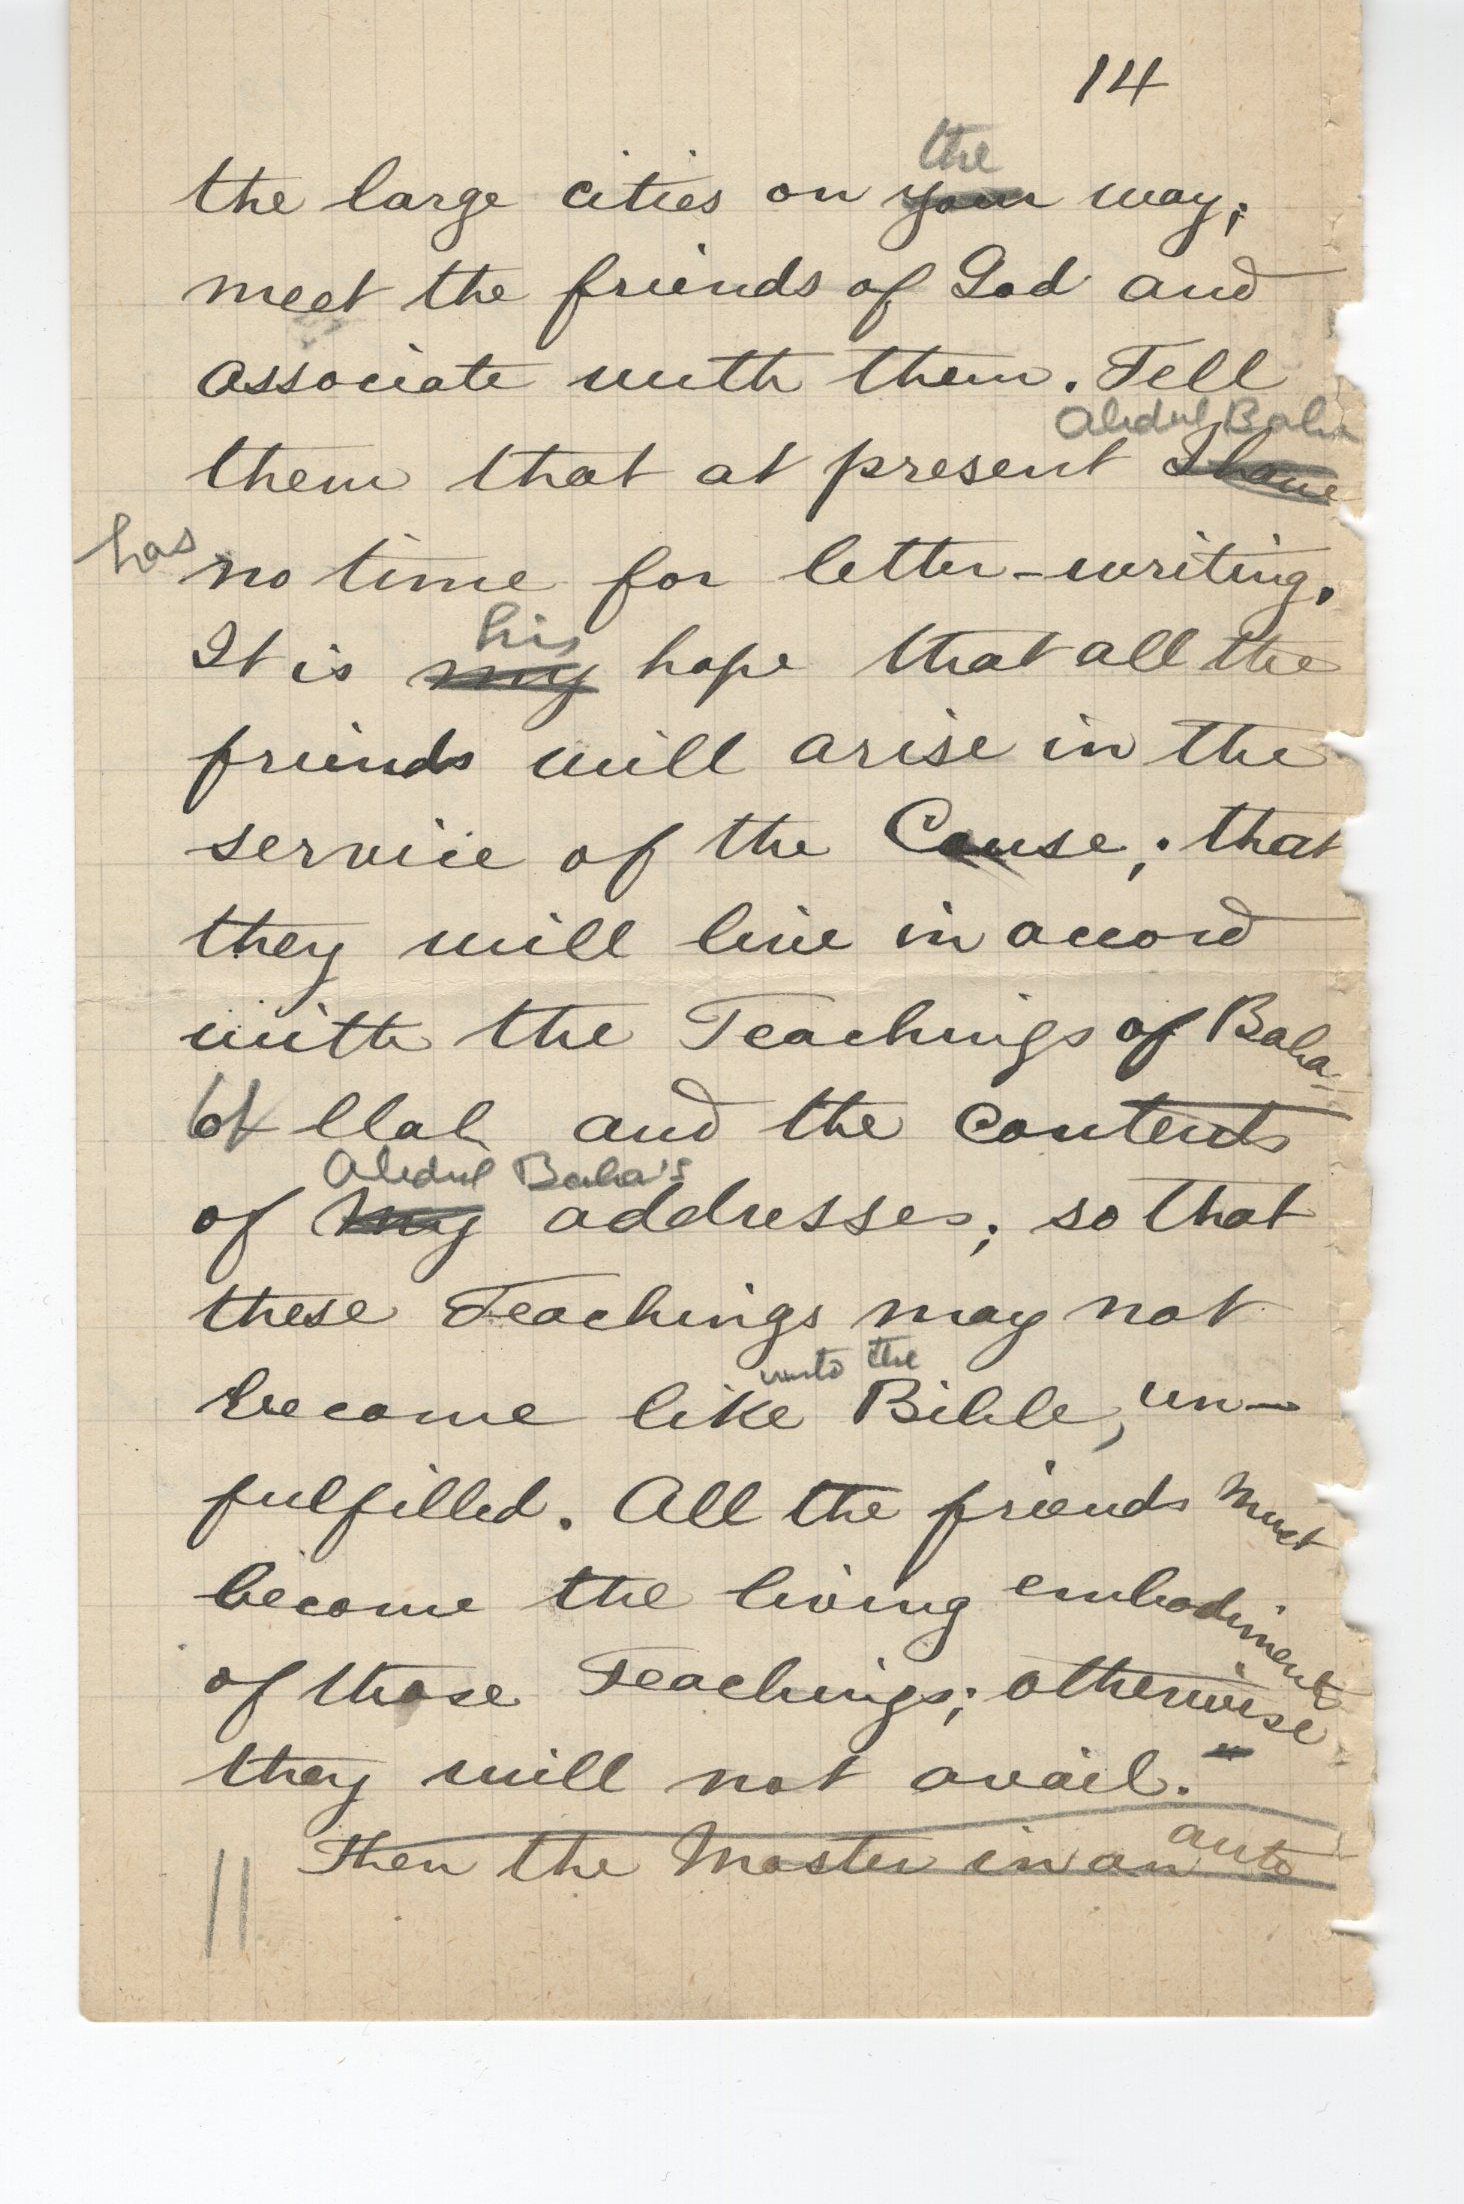 14
the
the large cities on your way;
meet the friends of God and
associate with them. Tell
Abdul Baha
them that at present I have
has no time for letter-writing.
his
It is my hope that all the
friends will arise in the
service of the Cause; that
they will live in accord
with the Teachings of Baha-
ollah and the contents
Abdul Baha's
of my addresses; so that
these Teachings may not
unto the
become like Bible, un-
fulfilled. All the friends must
become the living embodiment
of those Teachings; otherwise
they will not avail."
Then the Master in an auto